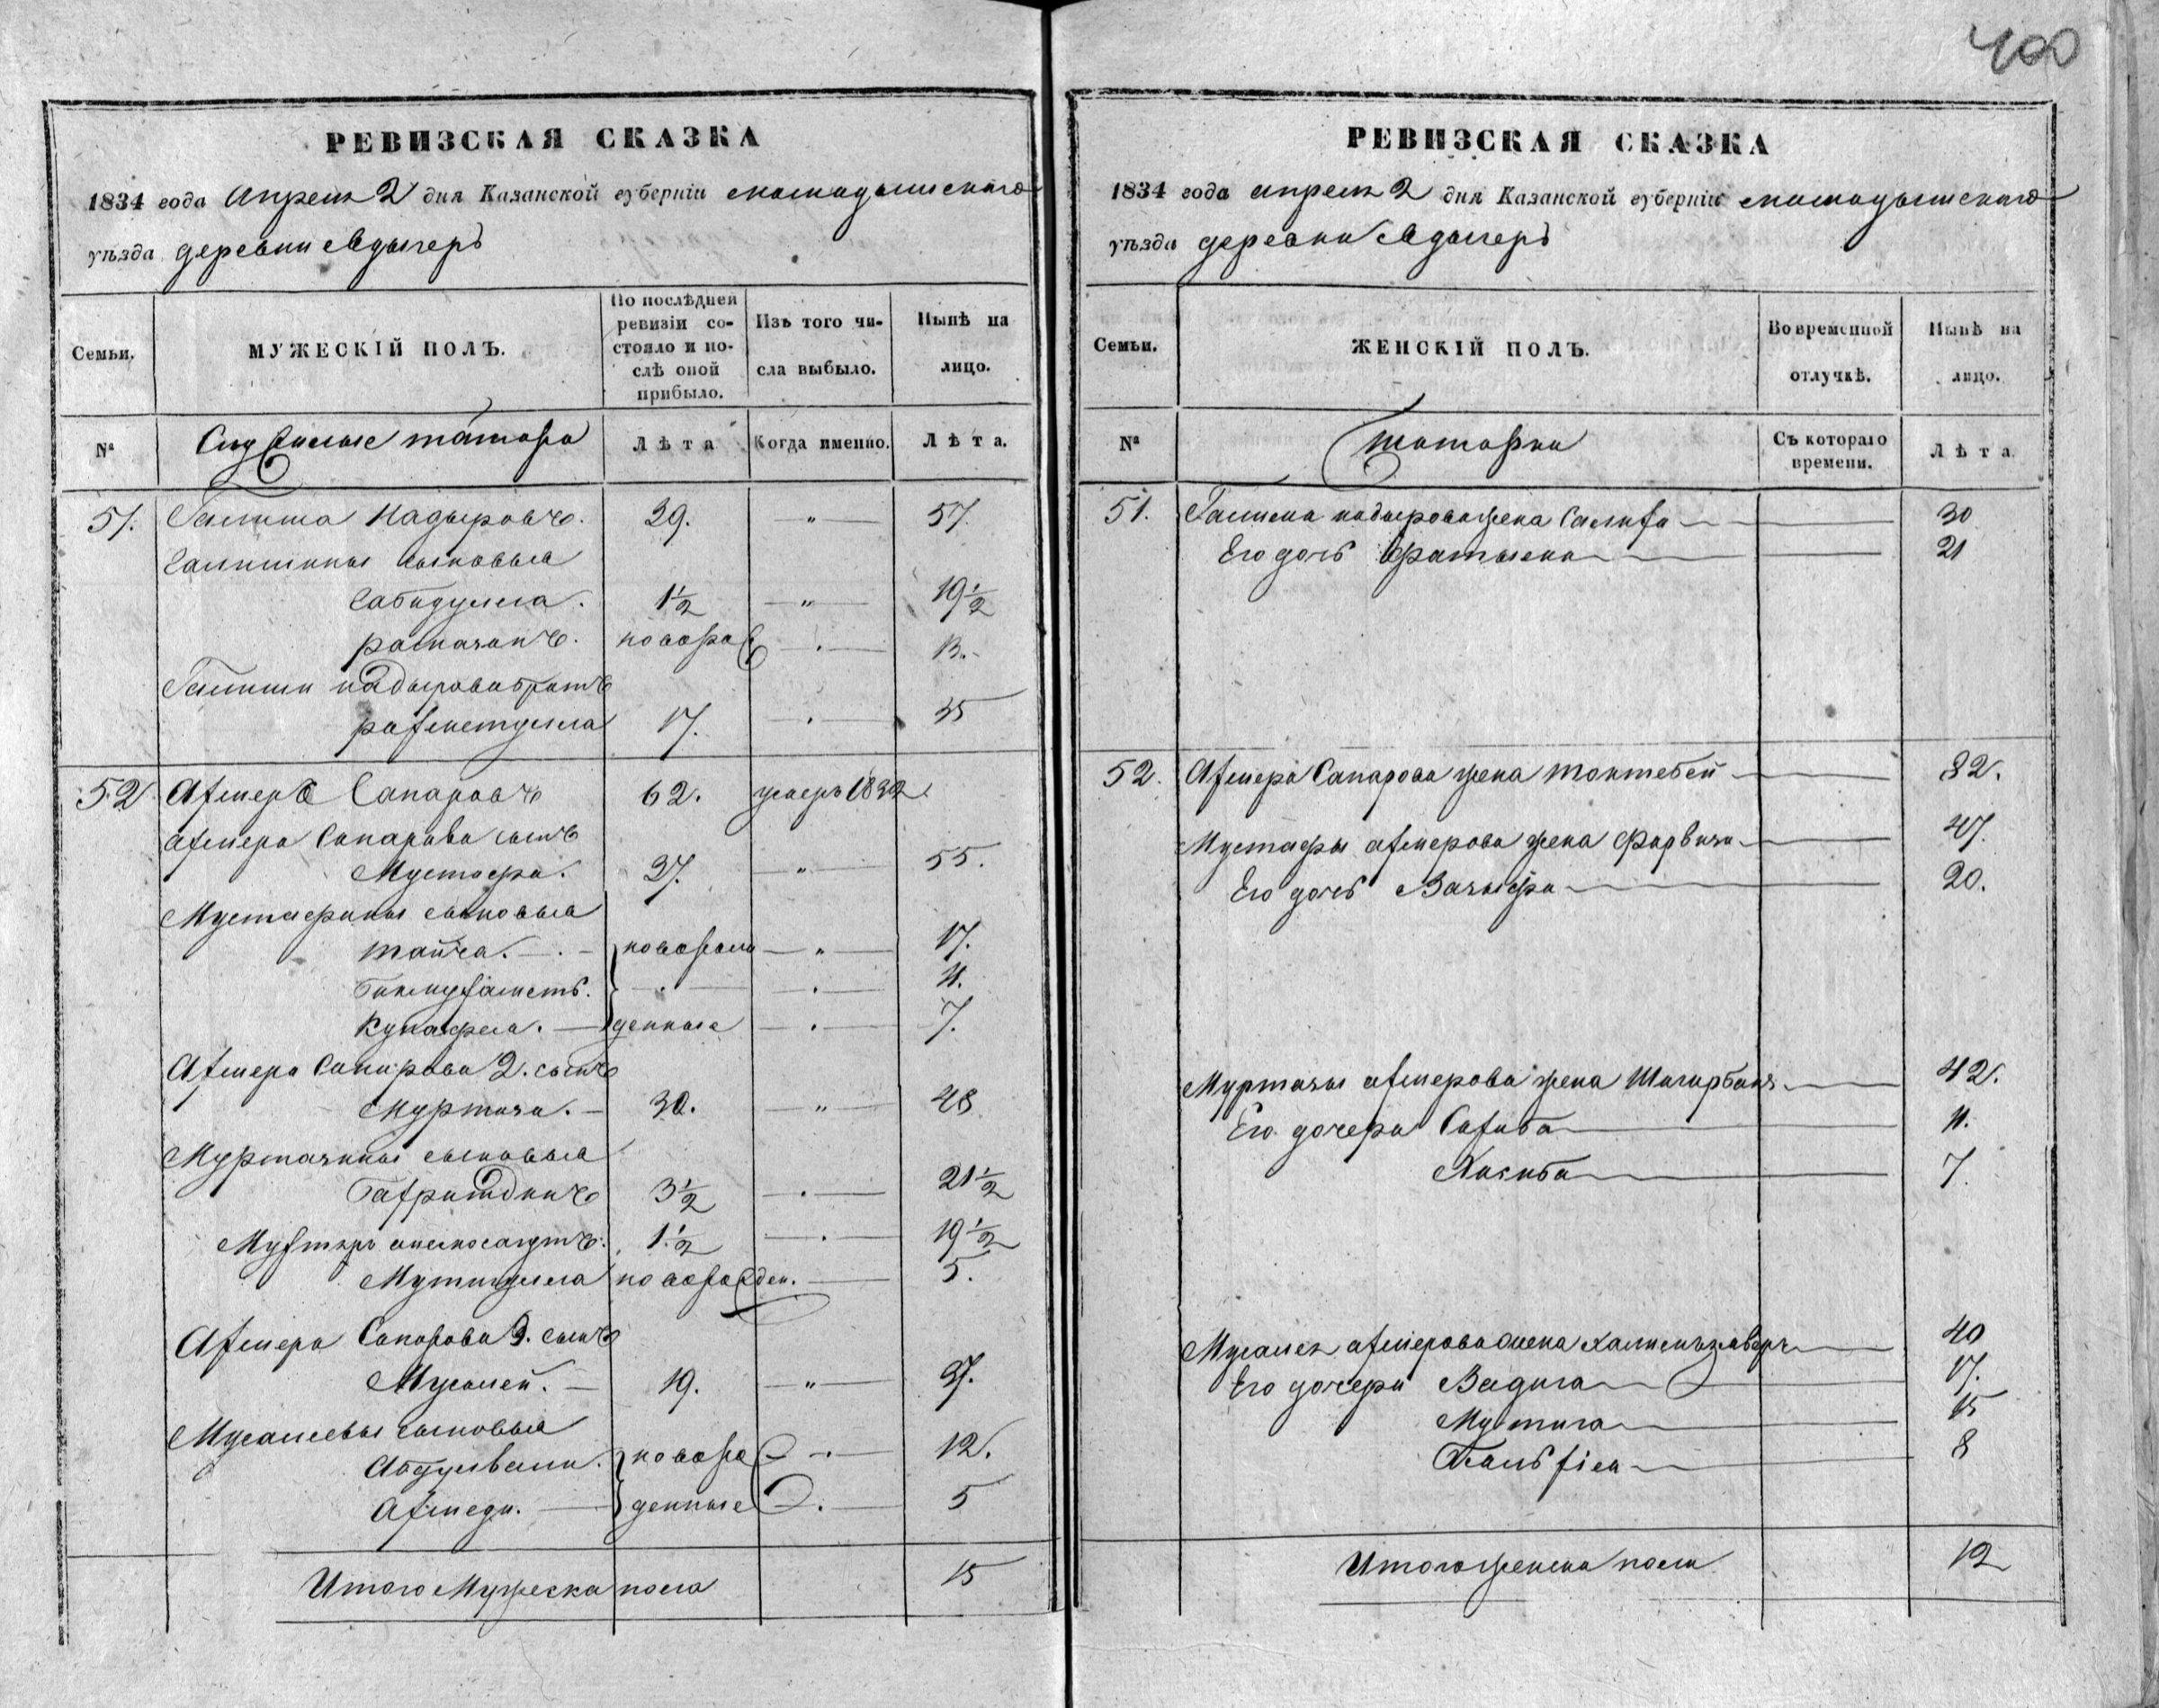 400
РЕВИЗСКАЯ СКАЗКА
1834 года апреля 2 дня Казанской губерніи мамадышскаго
уѣзда деревни Адаперъ
Семьи.
МУЖЕСКІЙ ПОЛЪ.
По послѣдней ревизіи состояло и послѣ оной прибыло.
Изъ того числа выбыло.
Нынѣ на лицо.
№
Служилые татара
Лѣта
Когда именно.
Лѣта.
51. Галиша Надыровъ. 39. " 57.
Галишины сыновья
Сабидулла. 1½ " 19½
рамазанъ. новорож 13.
Галиши надырова братъ
рахметулла 17. 35
52 Ахмеръ Сапаровъ 62. умеръ 1832.
ахмера Сапарова сынъ
Мустафа. 37. " 55.
Мустафины сыновья
новорож " 17.
Бикмухаметъ. 11.
денные 7.
Ахмера Сапарова 2. сынъ
Муртаза. 30. " 48
Муртазины сыновья
Бахритдинъ 3½ 21½
1½ 19½
Мутигулла новорожден. 5.
Ахмера Сапарова 3. сынъ
Мусалей. 19. " 37.
Мусалеевы сыновья
Абдулвали. новорож 12.
Ахмеди. денные 5
Итого Мужеска пола 15
РЕВИЗСКАЯ СКАЗКА
1834 года апреля 2 дня Казанской губерніи мамадышскаго
уѣзда деревни Адаперъ
Семьи.
ЖЕНСКІЙ ПОЛЪ.
Во временной отлучкѣ.
Нынѣ на лицо.
№
татарки
Съ котораго времени.
Лѣта.
51. Галиши надырова жена Салиха 30
Его дочь Фатыма 21
52. Ахмера Сапарова жена Токтебей 82.
Мустафы ахмерова жена Фарвиза 47.
Его дочь 20.
Муртазы ахмерова жена Шагарбану 42.
Его дочери Сахиба 11.
Хасиба 7.
Мусалея ахмерова жена 40
Его дочери Вадига 17.
Мутига 15
8
Итого женска пола 12